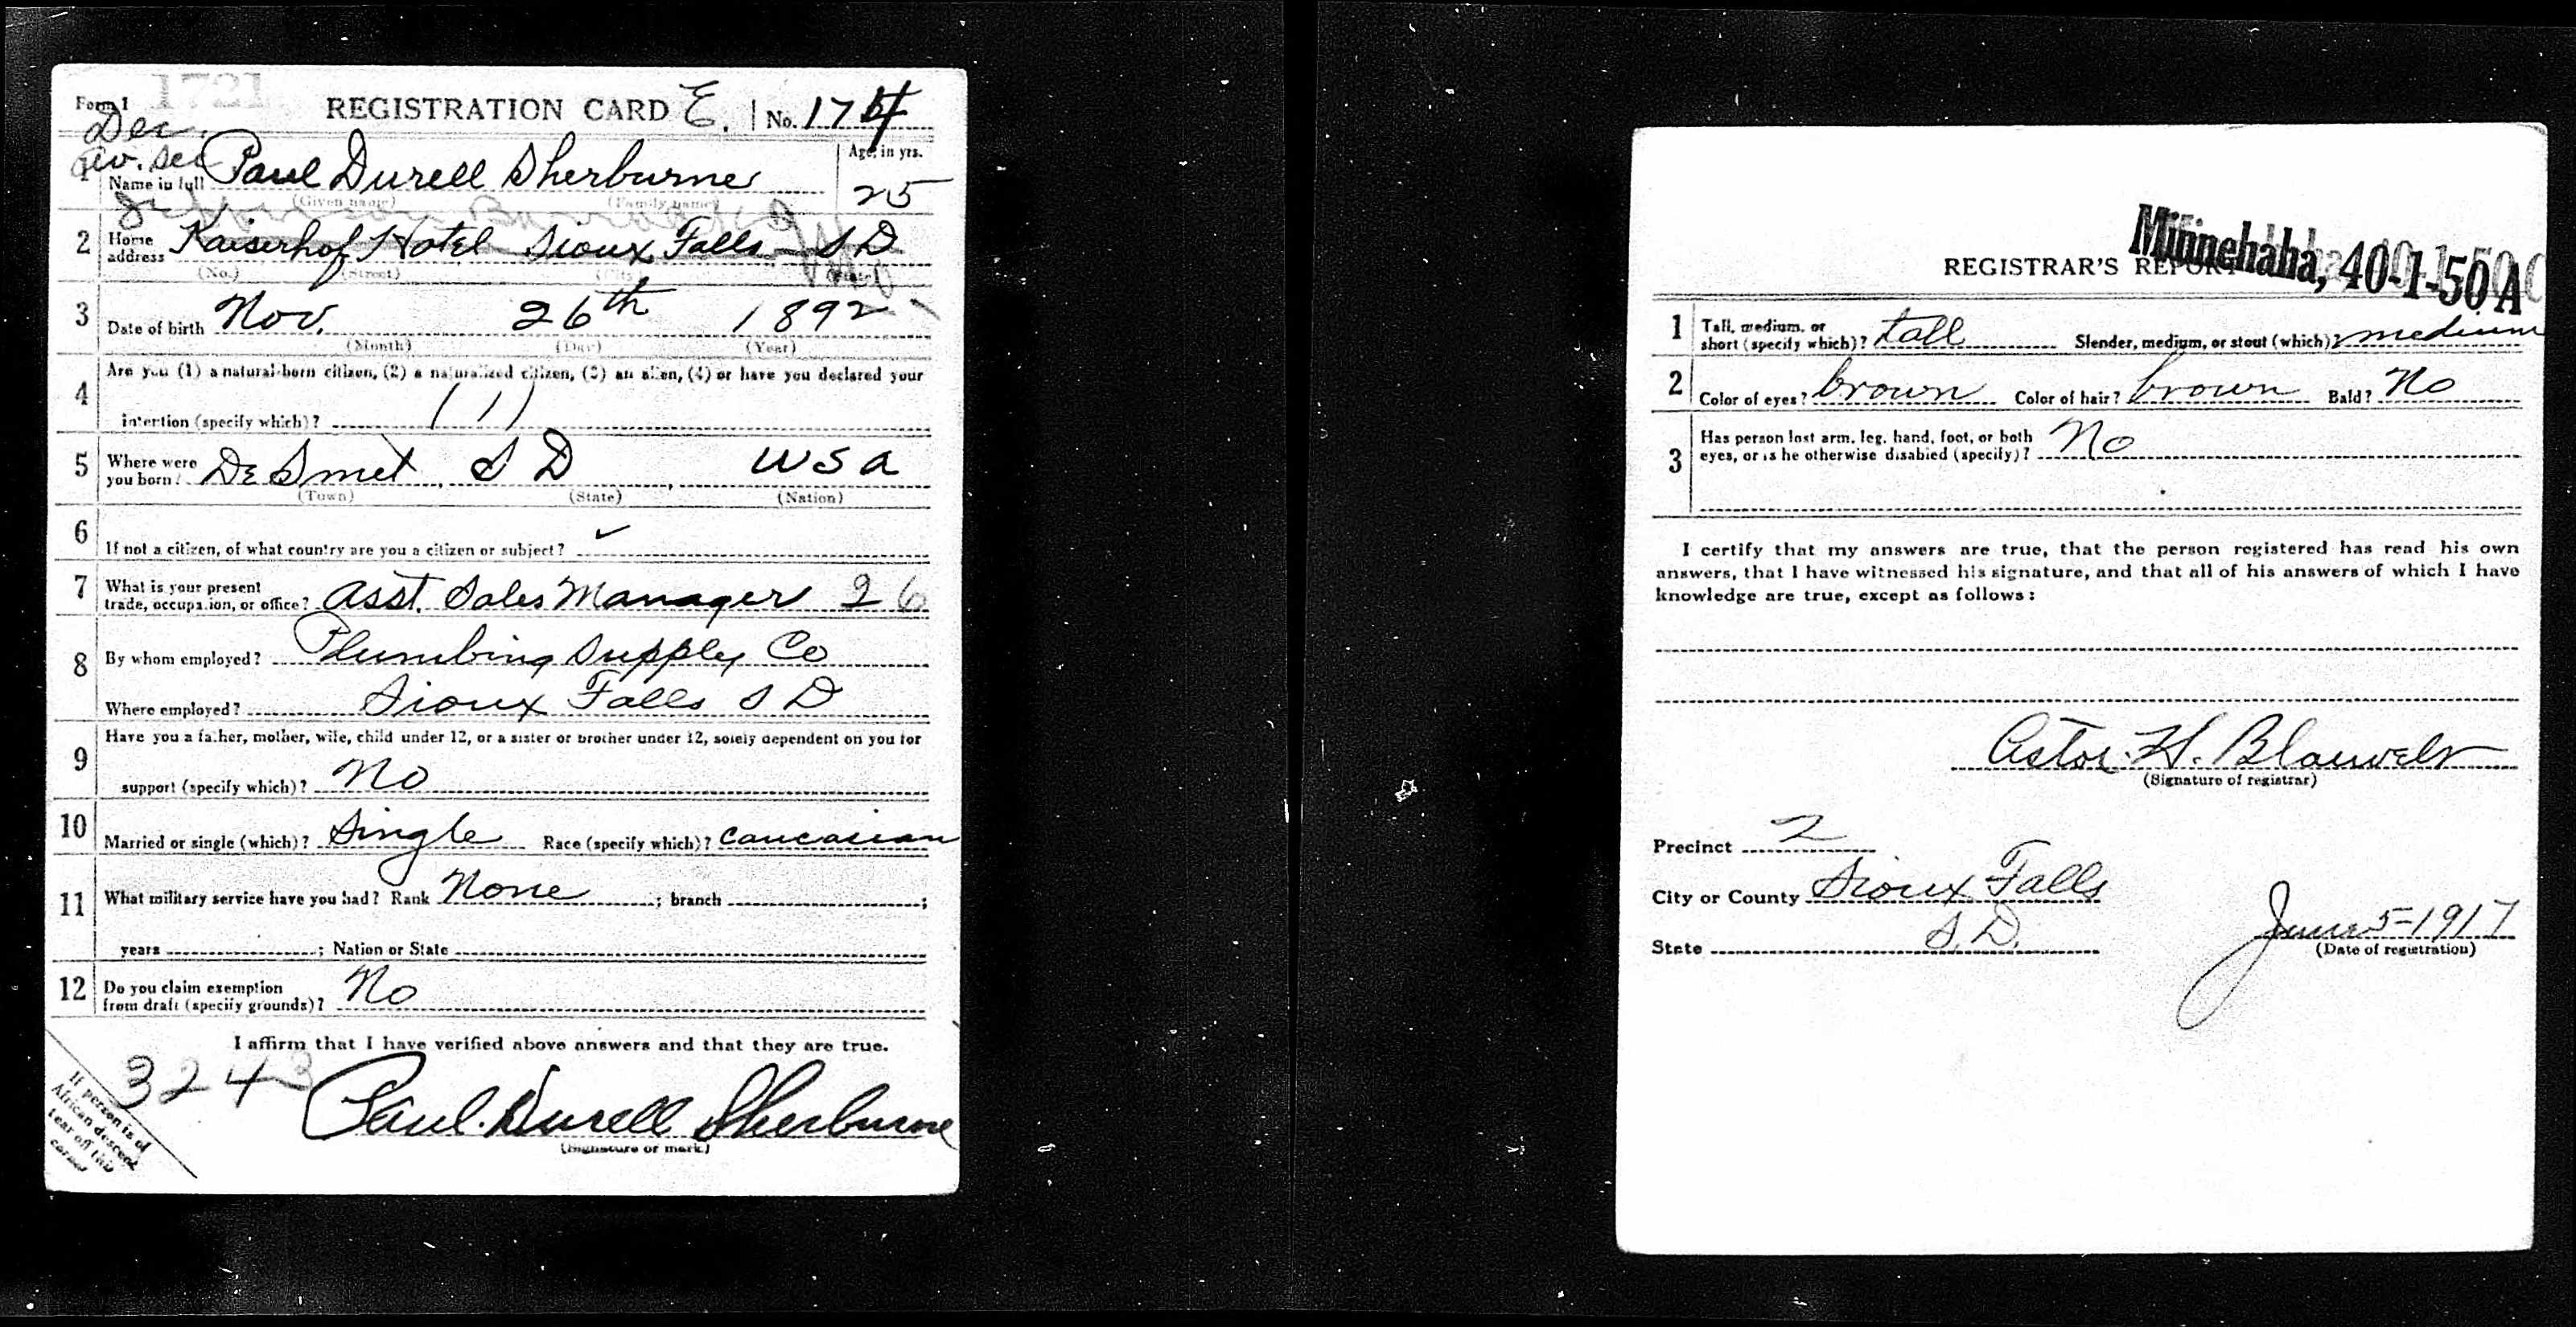 Form 1 1721 REGISTRATION CARD E. No. 174
Dec.
div. sec
1 Name in full Paul Durell Sherburne Age, in yrs. 25
(Given name) (Family name)
2 Home address Kaiserhof Hotel Sioux Falls S D
(No.) (Street) (City) (State)
3 Date of birth Nov. 26th 1892
(Month) (Day) (Year)
4 Are you (1) a natural-born citizen, (2) a naturalized citizen, (3) an alien, (4) or have you declared your
intention (specify which)? (1)
5 Where were you born? De Smet, S D, USA
(Town) (State) (Nation)
6 If not a citizen, of what country are you a citizen or subject? ✓
7 What is your present trade, occupation, or office? Asst. Sales Manager 26
8 By whom employed? Plumbing Supply Co
Where employed? Sioux Falls S D
9 Have you a father, mother, wife, child under 12, or a sister or brother under 12, solely dependent on you for
support (specify which)? No
10 Married or single (which)? Single Race (specify which)? Caucasian
11 What military service have you had? Rank None ; branch ;
years ; Nation or State
12 Do you claim exemption from draft (specify grounds)? No
I affirm that I have verified above answers and that they are true.
3243
Paul Durell Sherburne
(Signature or mark)
If person is of
African descent,
tear off this
corner
REGISTRAR'S REPORT Minnehaha, 40-1-50 A
1 Tall, medium, or short (specify which)? tall Slender, medium, or stout (which)? medium
2 Color of eyes? brown Color of hair? brown Bald? No
3 Has person lost arm, leg, hand, foot, or both eyes, or is he otherwise disabled (specify)? No
I certify that my answers are true, that the person registered has read his own
answers, that I have witnessed his signature, and that all of his answers of which I have
knowledge are true, except as follows:
Astor H. Blauvelt
(Signature of registrar)
Precinct 2
City or County Sioux Falls
State S.D.
June 5-1917
(Date of registration)